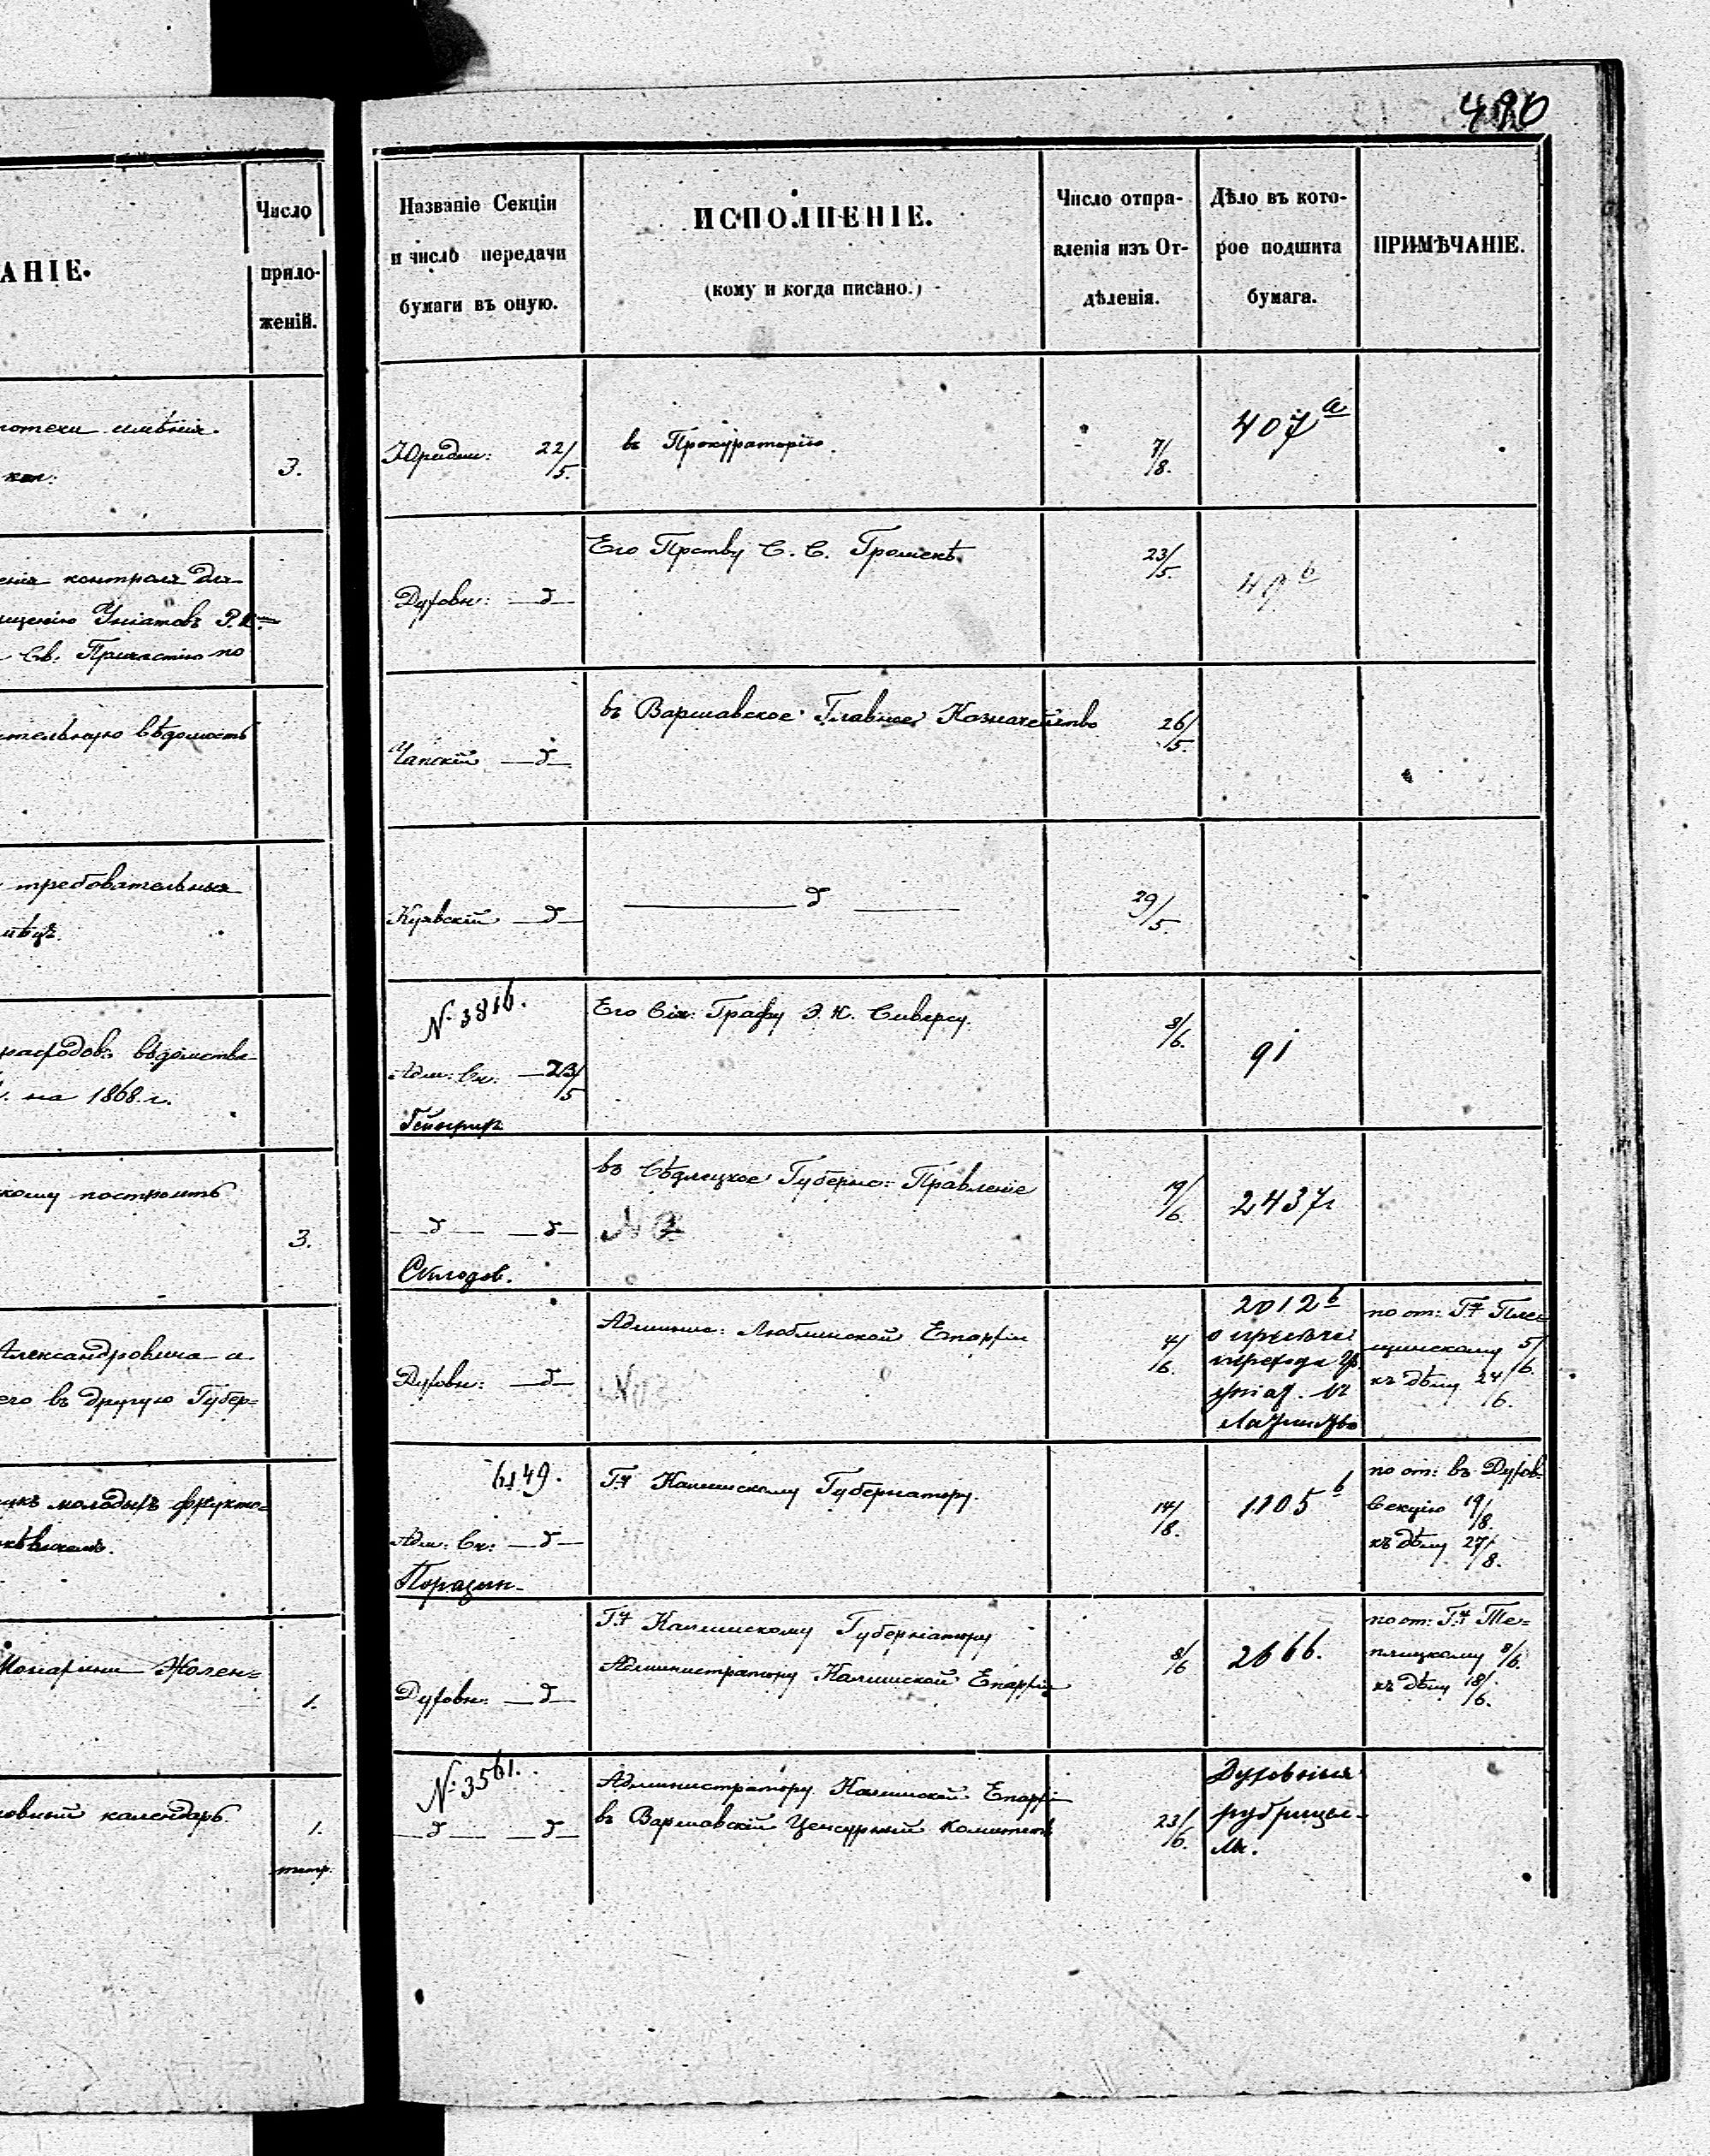 490
АНІЕ.
Число
прило-
женій.
потеки имѣнія.
3.
енія контроля
Уніатовъ
Св. Причастію по
вѣдомость
требовательныя
расходовъ вѣдомства
на 1868 г.
кому построить
3.
Александровича
его въ другую Губер=
молодыхъ фрукто=
1.
календарь
1.
Названіе Секціи
и число передачи
бумаги въ оную.
ИСПОЛНЕНІЕ.
(кому и когда писано.)
Число отпра-
вленія изъ От-
дѣленія.
Дѣло въ кото-
рое подшита
бумага.
ПРИМѢЧАНІЕ.
Юридич: 22/5.
въ Прокураторію.
7/8.
407 а
Духовн: — д —
Его Прству С. С. Громекѣ.
23/5.
Чапскій — д —
въ Варшавское Главное Казначейство
26/5.
Куявскій — д —
— д —
29/5.
№ 3816.
Адм: Ск: — 23/5
Его Сія: Графу Э. К. Сиверсу.
8/6.
91
— д — — д —
Склодов.
въ Сѣдлецкое Губерно= Правленіе
19/6.
2437
Духовн: — д —
Админис: Люблинской Епархіи
4/6.
2012 b
по от: Гну Пле=
щинскому 5/6.
къ дѣлу 24/6.
6149.
Адм: Ск: — д —
Поразин-
Гну Калишскому Губернатору.
14/8.
1105 b
по от: въ Духов-
Секцію 19/8.
къ дѣлу 27/8.
Духовн: — д —
Гну Калишскому Губернатору
Администратору Калишской Епархіи
8/6
2666.
по от: Гну Те=
плицкому 8/6.
къ дѣлу 18/6.
№ 3561.
— д — — д —
Администратору Калишской Епархіи
въ Варшавскій Цензурный Комитетъ
23/6.
Духовныя
рубрицел-
ли.